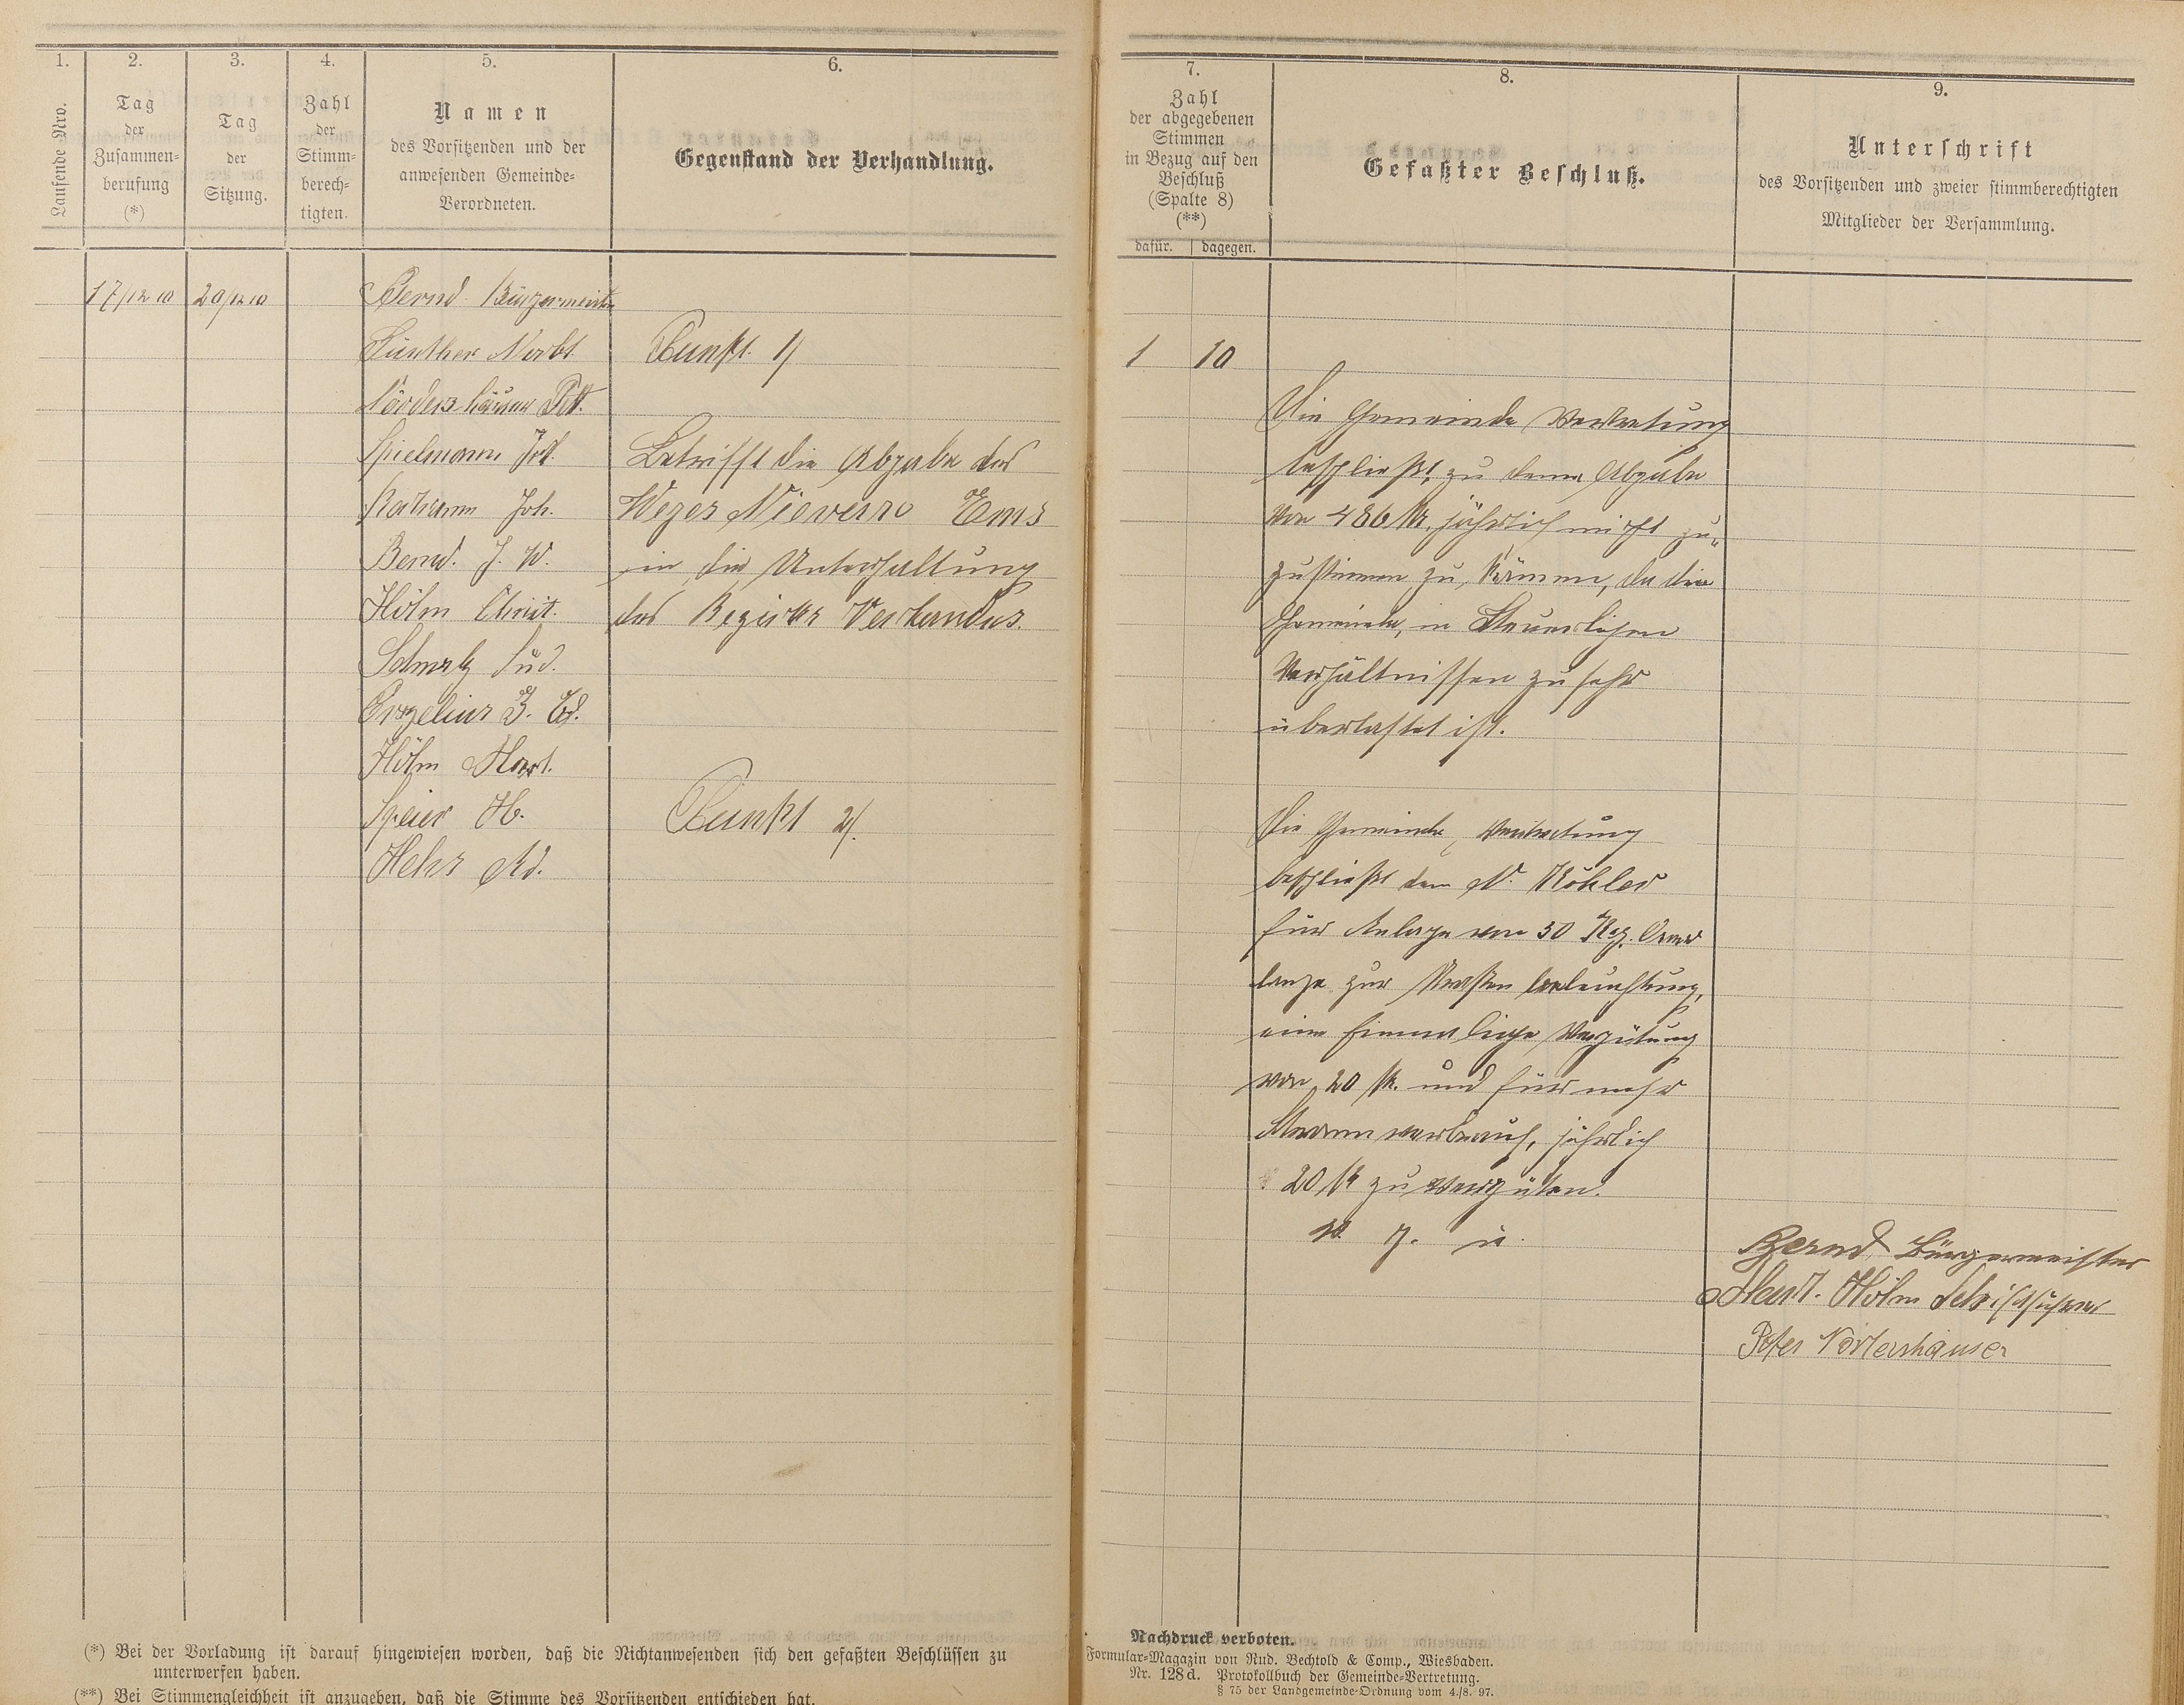 1.
Laufende Nro.
2.
Tag
der
Zusammen-
berufung
(*)
3.
Tag
der
Sitzung.
4.
Zahl
der
Stimm-
berech-
tigten.
5.
Namen
des Vorsitzenden und der
anwesenden Gemeinde-
Verordneten.
6.
Gegenstand der Verhandlung.
7.
Zahl
der abgegebenen
Stimmen
in Bezug auf den
Beschluß
(Spalte 8)
(**)
dafür. dagegen.
8.
Gefaßter Beschluß.
9.
Unterschrift
des Vorsitzenden und zweier stimmberechtigten
Mitglieder der Versammlung.
17/12 10
20/12 10
Bernd Bürgermeister
Günther Norbt.
Nörders häuser Pet.
Spielmann Jos.
Joh.
Bernd. J. W.
Höhn Christ.
Schmelz
J. Ed.
Höhn Mart.
Speier H.
Hehs Ad.
Punkt 1)
Betrifft die Abgabe des
Weges Nievern Ems
in die Unterhaltung
des Bezirks Verbandes.
Punkt 2).
1 10
Die Gemeinde Vertretung
beschließt, zu dener Abgabe
von 486 M. jährlich nicht zu"
zustimmen zu können, da die
Gemeinde, in Steuerlichen
Verhältnissen zu sehr
überlastet ist.
Die Gemeinde, Vertretung
beschließt dem N. Köhler
für Anlage von 50
lampe zur beleuchtung,
eine Einmalige Vergütung
von 20 M. und für mehr
verbrauch, jährlich
20 M zu vergüten.
v. g. u.
Bernd Bürgermeister
Mart. Höhn Schriftführer
Peter Nörtershäuser
(*) Bei der Vorladung ist darauf hingewiesen worden, daß die Nichtanwesenden sich den gefaßten Beschlüssen zu
unterwerfen haben.
(**) Bei Stimmengleichheit ist anzugeben, daß die Stimme des Vorsitzenden entschieden hat.
Nachdruck verboten.
Formular-Magazin von Rud. Bechtold & Comp., Wiesbaden.
Nr. 128d. Protokollbuch der Gemeinde-Vertretung.
§ 75 der Landgemeinde-Ordnung vom 4./8. 97.